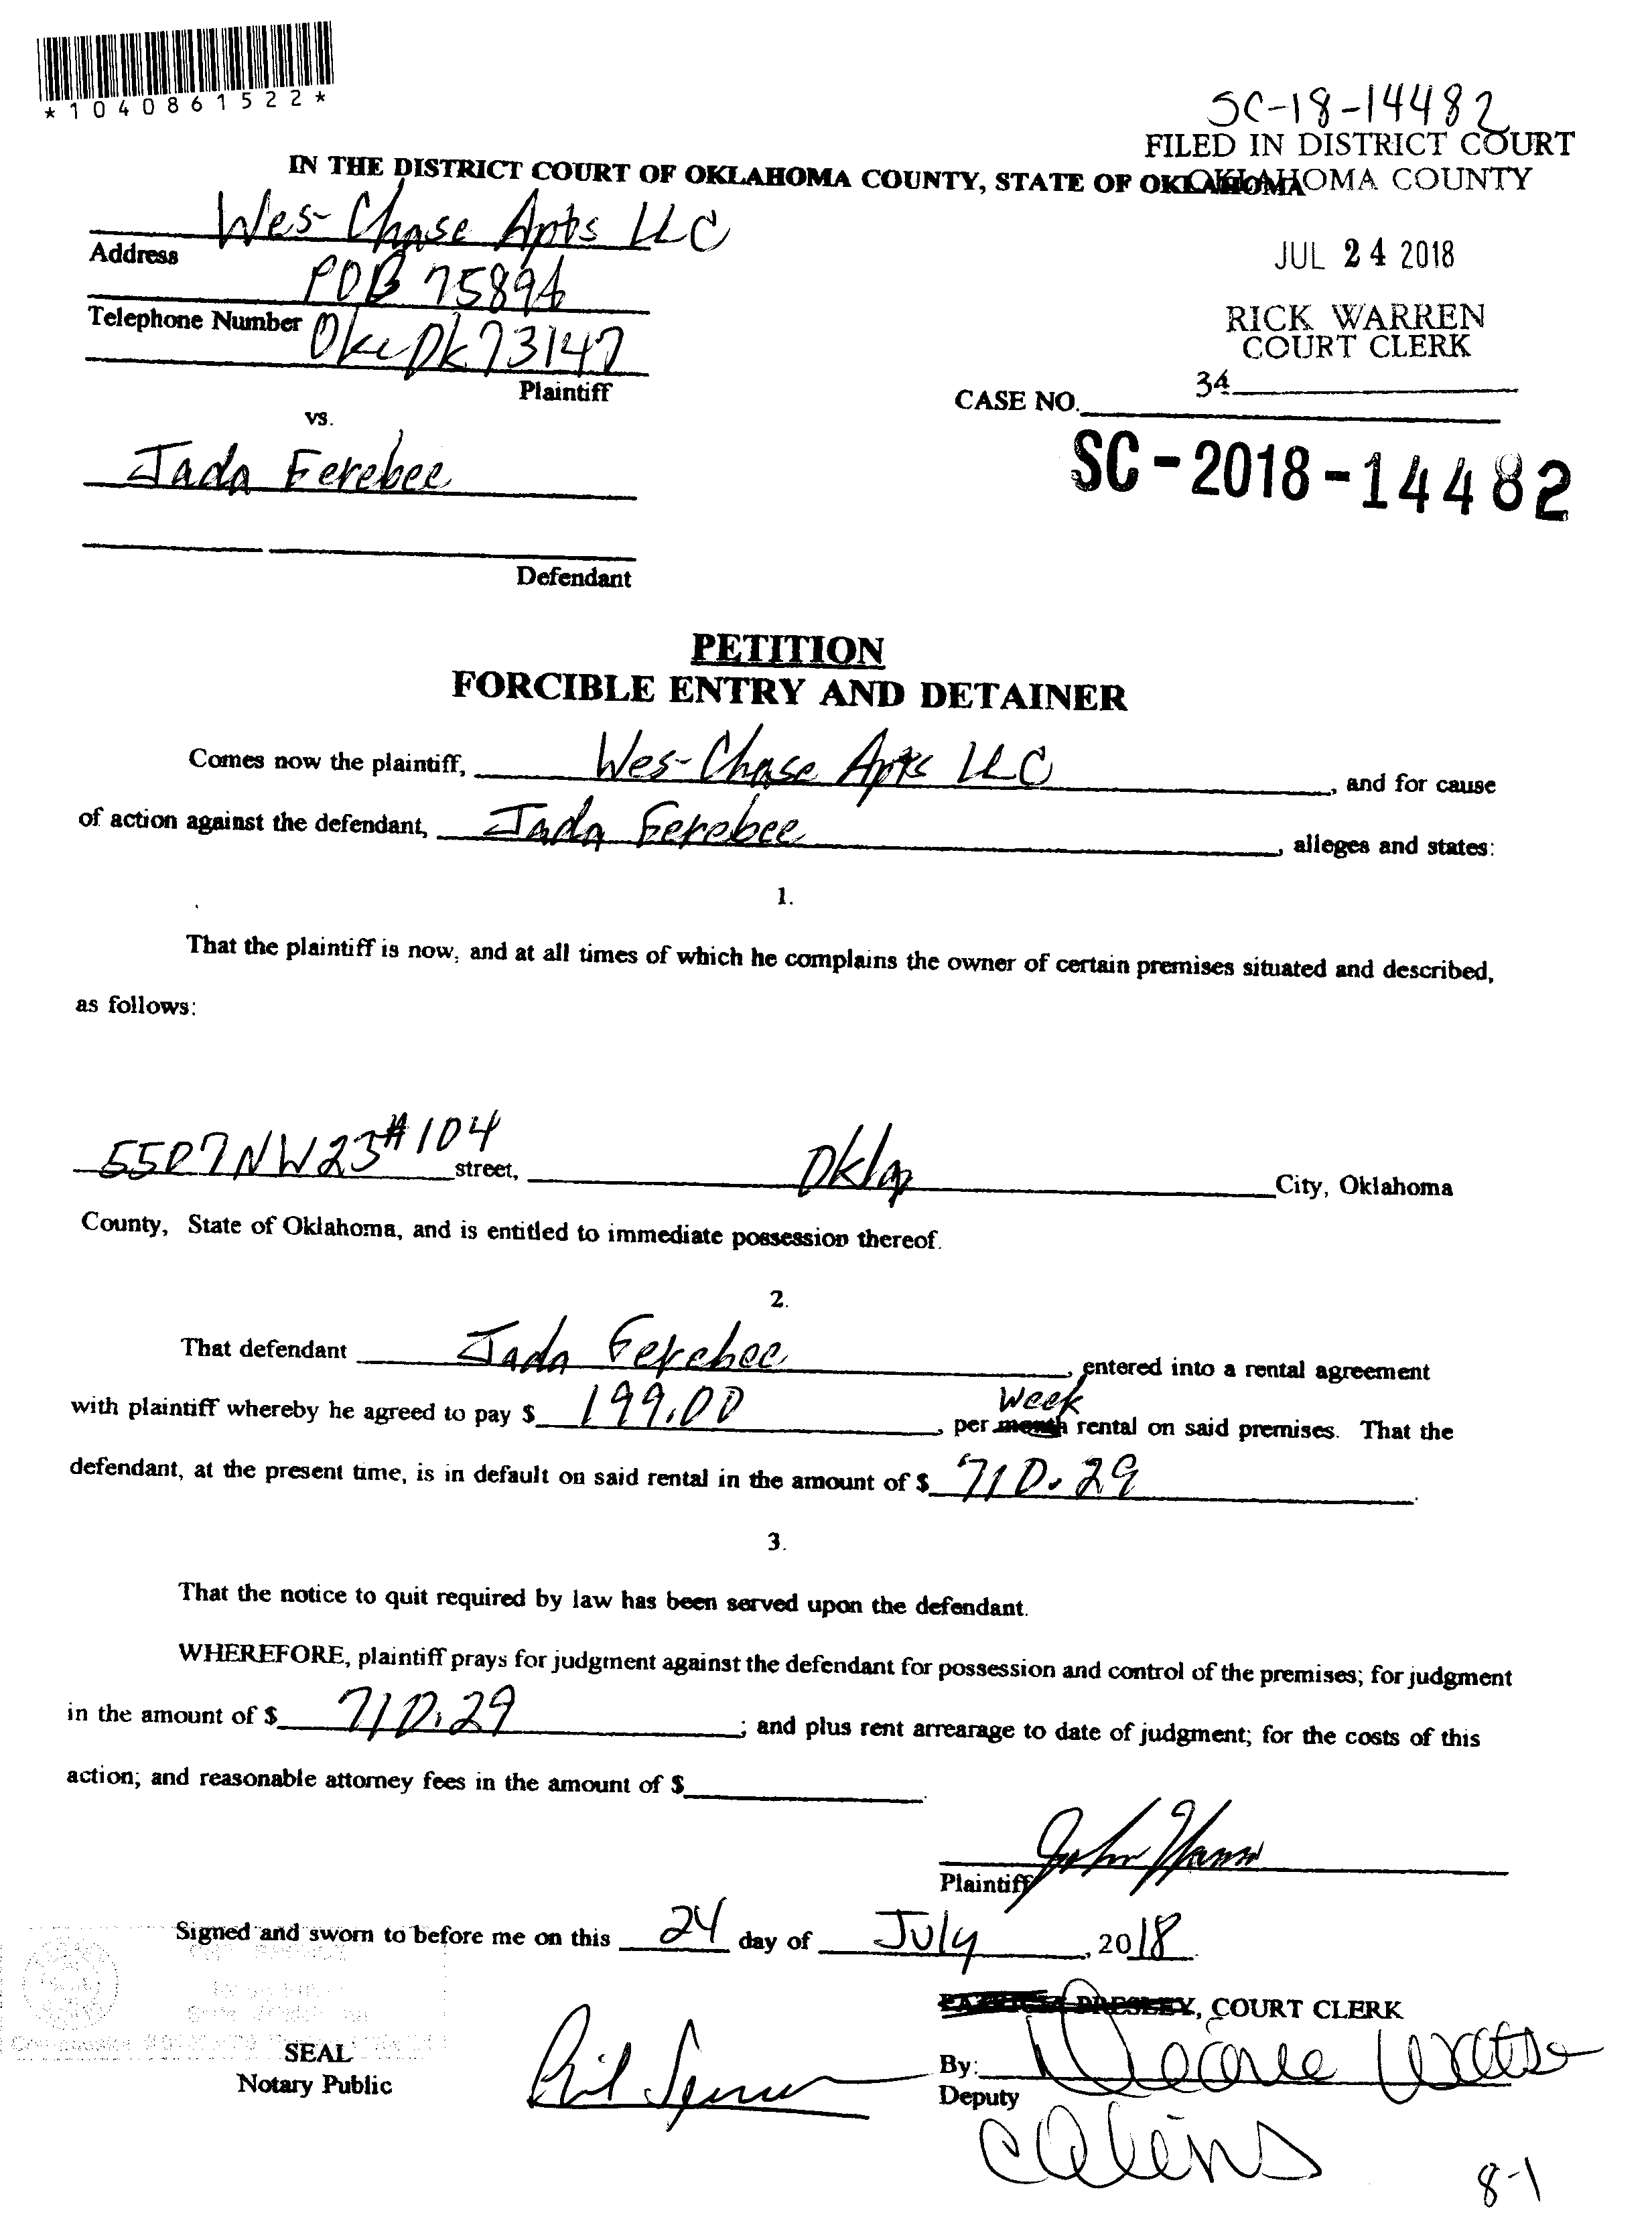 *1040861522*
SC-18-14482
FILED IN DISTRICT COURT
OKLAHOMA COUNTY
IN THE DISTRICT COURT OF OKLAHOMA COUNTY, STATE OF OKLAHOMA
Wes-Chase Apts LLC
Address
POB 75894
JUL 24 2018
Telephone Number
Okc Ok 73147
RICK WARREN
COURT CLERK
Plaintiff
34
CASE NO.
vs.
SC-2018-14482
Jada Ferebee
Defendant
PETITION
FORCIBLE ENTRY AND DETAINER
Comes now the plaintiff, Wes-Chase Apts LLC, and for cause
of action against the defendant, Jada Ferebee, alleges and states:
1.
That the plaintiff is now, and at all times of which he complains the owner of certain premises situated and described,
as follows:
5507 NW 23 #104 street, Okla City, Oklahoma
County, State of Oklahoma, and is entitled to immediate possession thereof.
2.
That defendant Jada Ferebee, entered into a rental agreement
week
with plaintiff whereby he agreed to pay $ 199.00, per month rental on said premises. That the
defendant, at the present time, is in default on said rental in the amount of $ 710.29.
3.
That the notice to quit required by law has been served upon the defendant.
WHEREFORE, plaintiff prays for judgment against the defendant for possession and control of the premises; for judgment
in the amount of $ 710.29; and plus rent arrearage to date of judgment; for the costs of this
action; and reasonable attorney fees in the amount of $.
John
Plaintiff
Signed and sworn to before me on this 24 day of July, 2018.
PRESLEY, COURT CLERK
SEAL
Notary Public
By:
Deputy
8-1